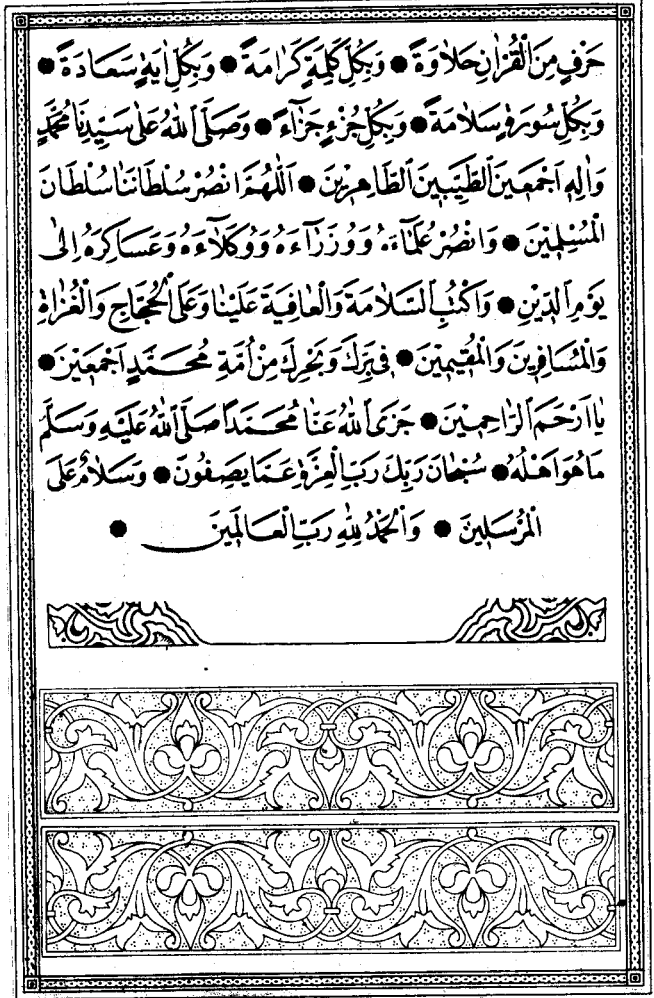 حَرْفٍ مِنَ الْقُرْاٰنِ حَلَاوَةً ● وَبِكُلِّ كَلِمَةٍ كَرَامَةً ● وَبِكُلِّ اٰيَةٍ سَعَادَةً ●
وَبِكُلِّ سُورَةٍ سَلَامَةً ● وَبِكُلِّ جُزْءٍ جَزَٓاءً ● وَصَلَّى اللّٰهُ عَلٰى سَيِّدِنَا مُحَمَّدٍ
وَاٰلِهٖ اَجْمَعٖينَ الطَّيِّبٖينَ الطَّاهِرٖينَ ● اَللّٰهُمَّ انْصُرْ سُلْطَانَنَا سُلْطَانَ
الْمُسْلِمٖينَ ● وَانْصُرْ عُلَمَٓاءَهُ وَوُزَرَٓاءَهُ وَوُكَلَٓاءَهُ وَعَسَاكِرَهُ اِلٰى
يَوْمِ الدّٖينِ ● وَاكْتُبِ السَّلَامَةَ وَالْعَافِيَةَ عَلَيْنَا وَعَلَى الْحُجَّاجِ وَالْغُزَاةِ
وَالْمُسَافِرٖينَ وَالْمُقٖيمٖينَ ● فٖى بَرِّكَ وَبَحْرِكَ مِنْ اُمَّةِ مُحَمَّدٍ اَجْمَعٖينَ ●
يَٓا اَرْحَمَ الرَّاحِمٖينَ ● جَزَى اللّٰهُ عَنَّا مُحَمَّدًا صَلَّى اللّٰهُ عَلَيْهِ وَسَلَّمَ
مَا هُوَ اَهْلُهُ ● سُبْحَانَ رَبِّكَ رَبِّ الْعِزَّةِ عَمَّا يَصِفُونَ ● وَسَلَامٌ عَلَى
الْمُرْسَلٖينَ ● وَالْحَمْدُ لِلّٰهِ رَبِّ الْعَالَمٖينَ ●